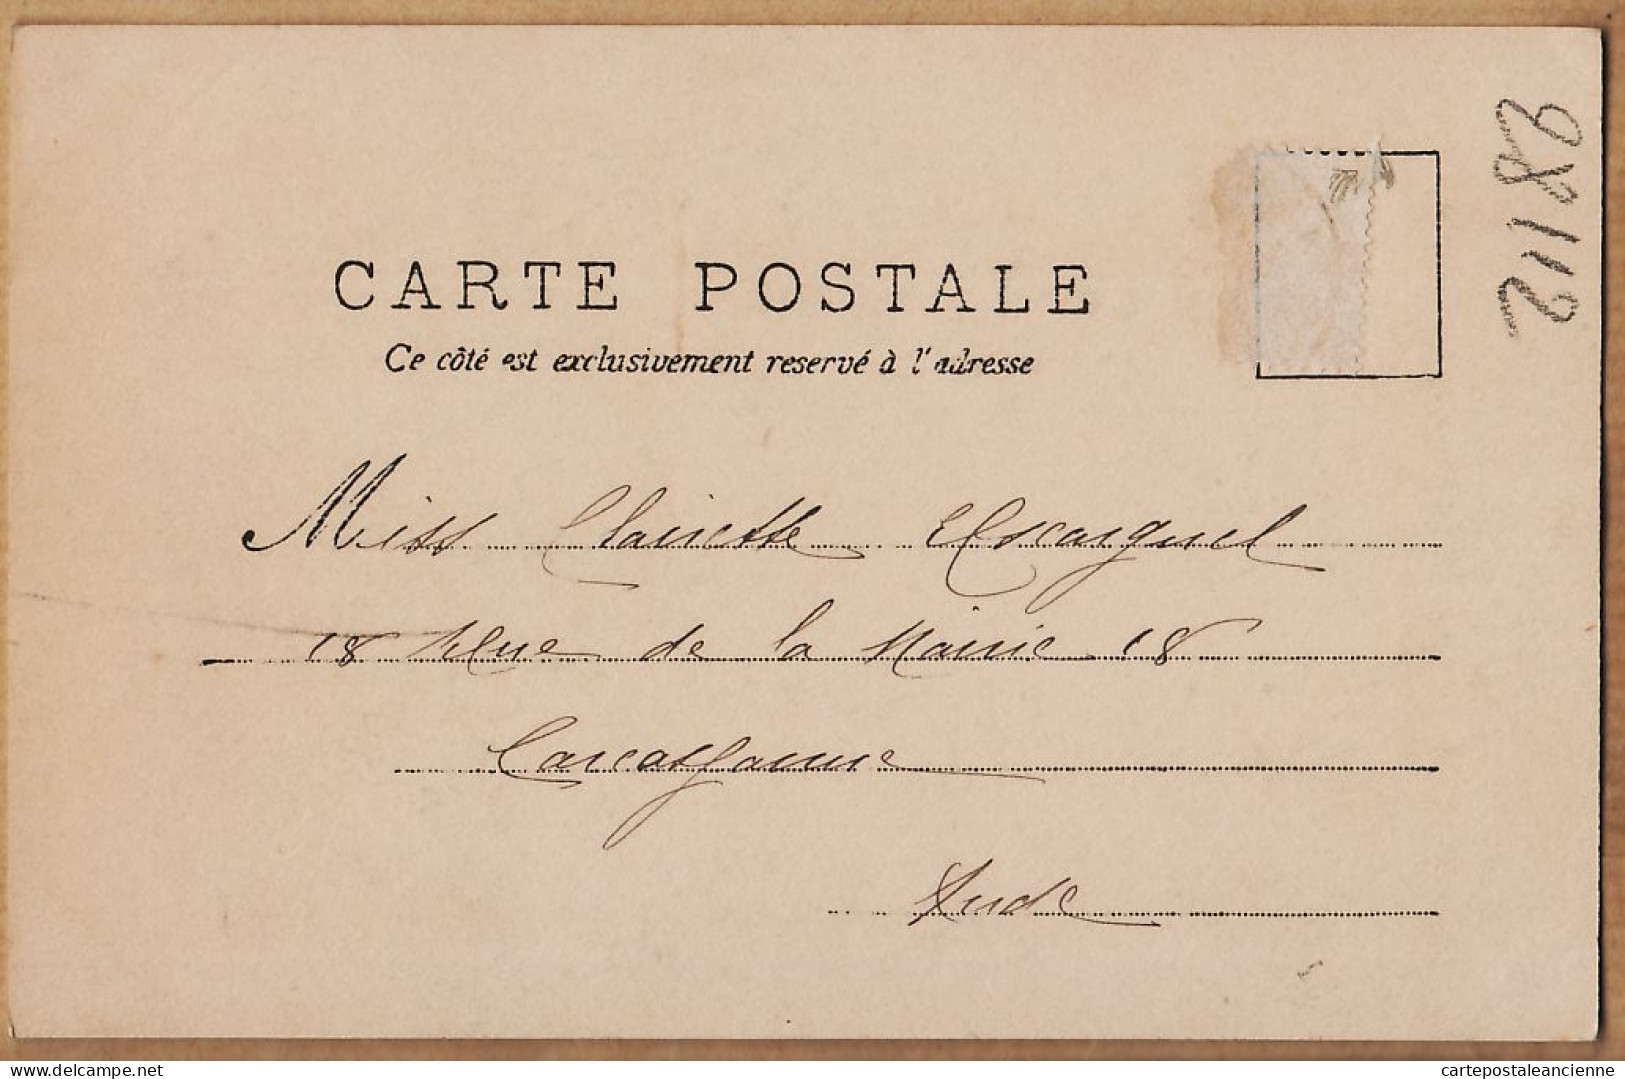 CARTE POSTALE
Ce côté est exclusivement reservé à l'adresse
28112
Miss Clairette Escarguel
18 Rue de la Mairie 18
Carcassonne
Aude
delcampe.net
cartepostaleancienne